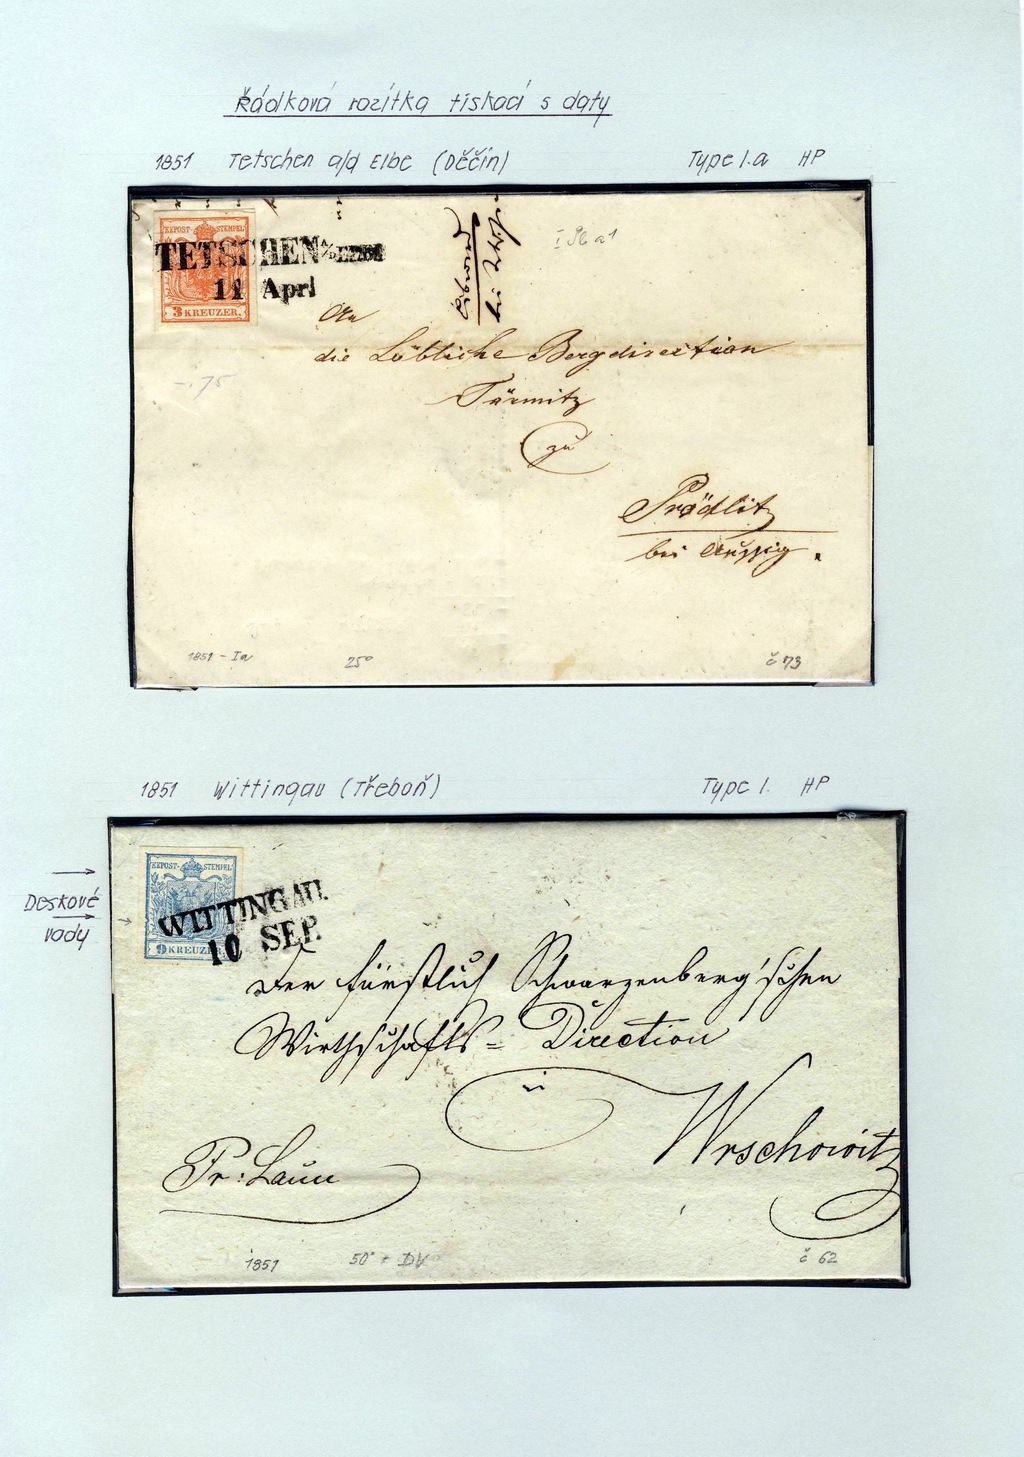 Řádková razítka tiskací s daty
1851 Tetschen a/d Elbe (Děčín) Type I.a HP
KKPOST-STEMPEL
TETSCHEN a/d ELBE
11 Apri
3 KREUZER.
I Sb a1
An
die Löbliche Bergdirection
Türmitz
zu
Prödlitz
bei Aussig.
-.75
1851 - Ia 25° č 73
1851 Wittingau (Třeboň) Type I. HP
Deskové
vady
KKPOST-STEMPEL
WITTINGAU.
10 SEP.
9 KREUZER
Der fürstlich Schwarzenberg'schen
Wirthschafts= Direction
in
Wrschowitz
Pr: Laun
1851 50° + DV č 62